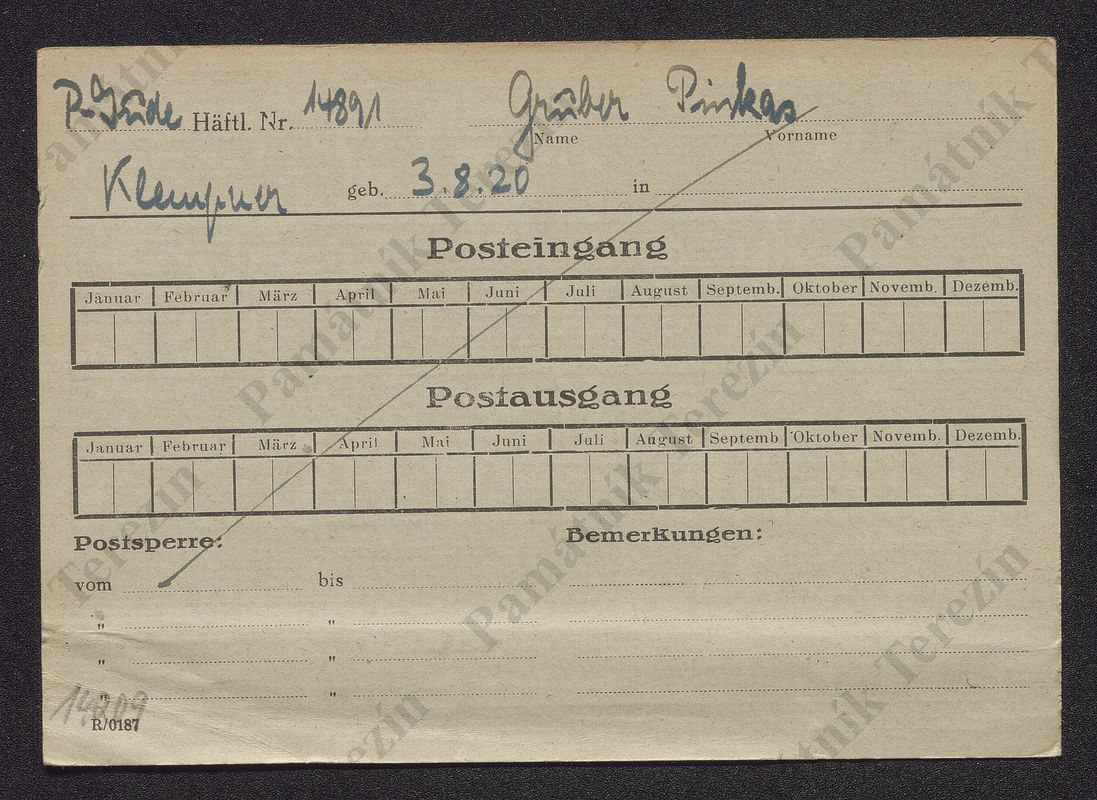 P-Jude Häftl. Nr. 14891 Gruber Pinkas
Name Vorname
Klempner geb. 3.8.20 in
Posteingang
Januar Februar März April Mai Juni Juli August Septemb. Oktober Novemb. Dezemb.
Postausgang
Januar Februar März April Mai Juni Juli August Septemb Oktober Novemb. Dezemb.
Postsperre: Bemerkungen:
vom bis
" "
" "
" "
R/0187
Památník Terezín